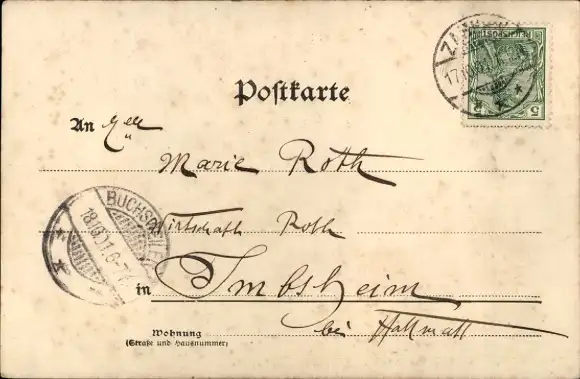 Postkarte
An Mlle
Marie Roth
Wirtschaft Roth
in Imbsheim
bei
Wohnung
(Straße und Hausnummer)
17.10.01
REICHSPOST
5 5
BUCHSWEILER
18.10.01.6-7